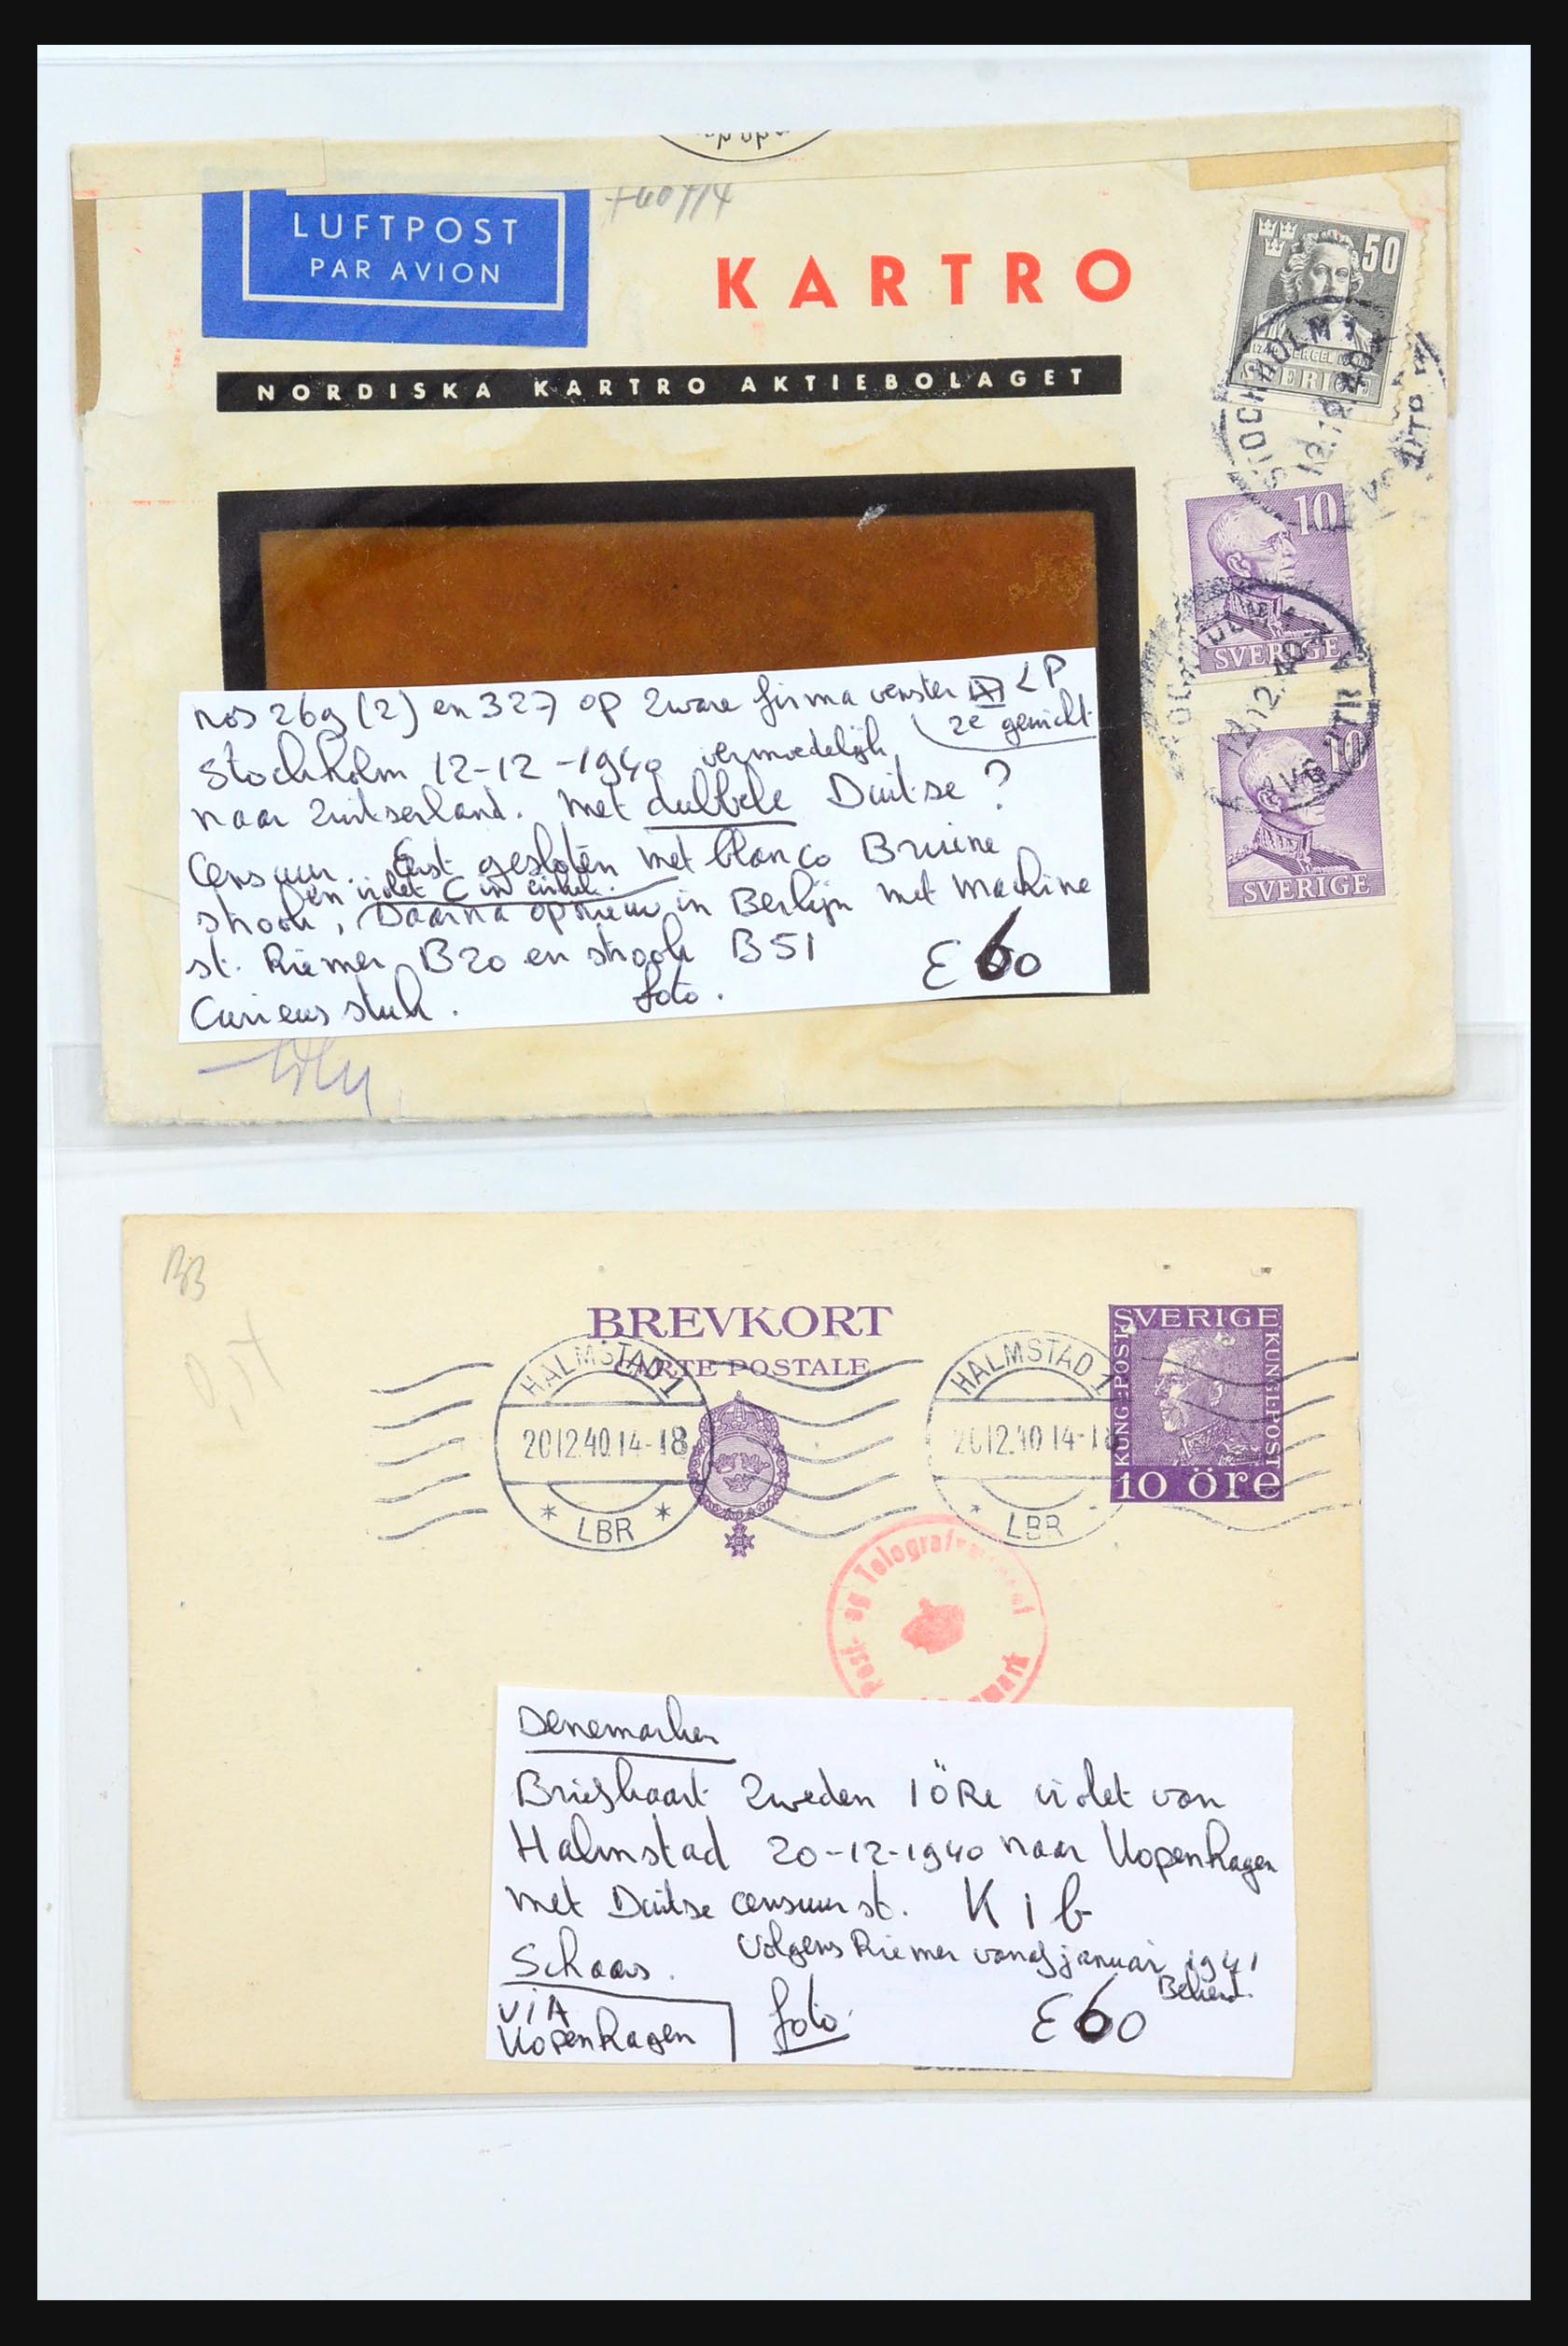 LUFTPOST
PAR AVION
KARTRO
NORDISKA KARTRO AKTIEBOLAGET
50
SVERIGE
STOCKHOLM 1
12.12.40
10
SVERIGE
12.12.40
AVG
10
SVERIGE
nos 269 (2) en 327 op zware firma venster LP
2e gewicht
Stockholm 12-12-1940 vermoedelijk
naar Zwitserland. Met dubbele Duitse ?
Censuur. Eerst gesloten met blanco Bruine
en violet C in cirkel.
strook, Daarna opnieuw in Berlijn met Machine
st. Riemer B20 en strook B51
Curieus stuk. foto. £ 60
BB
BREVKORT
CARTE POSTALE
SVERIGE
KUNGL POST
KUNGL POST
10 öre
HALMSTAD 1
20.12.40.14-18
* LBR *
HALMSTAD 1
20.12.40 14-18
* LBR
Post- og Telegrafvæsenet
Denemarken
Briefkaart Zweden 10Re violet van
Halmstad 20-12-1940 naar Kopenhagen
met Duitse censuur st. K 1 b
Volgens Riemer vanaf januari 1941
Bekend.
Schaars.
VIA
Kopenhagen
foto.
£ 60